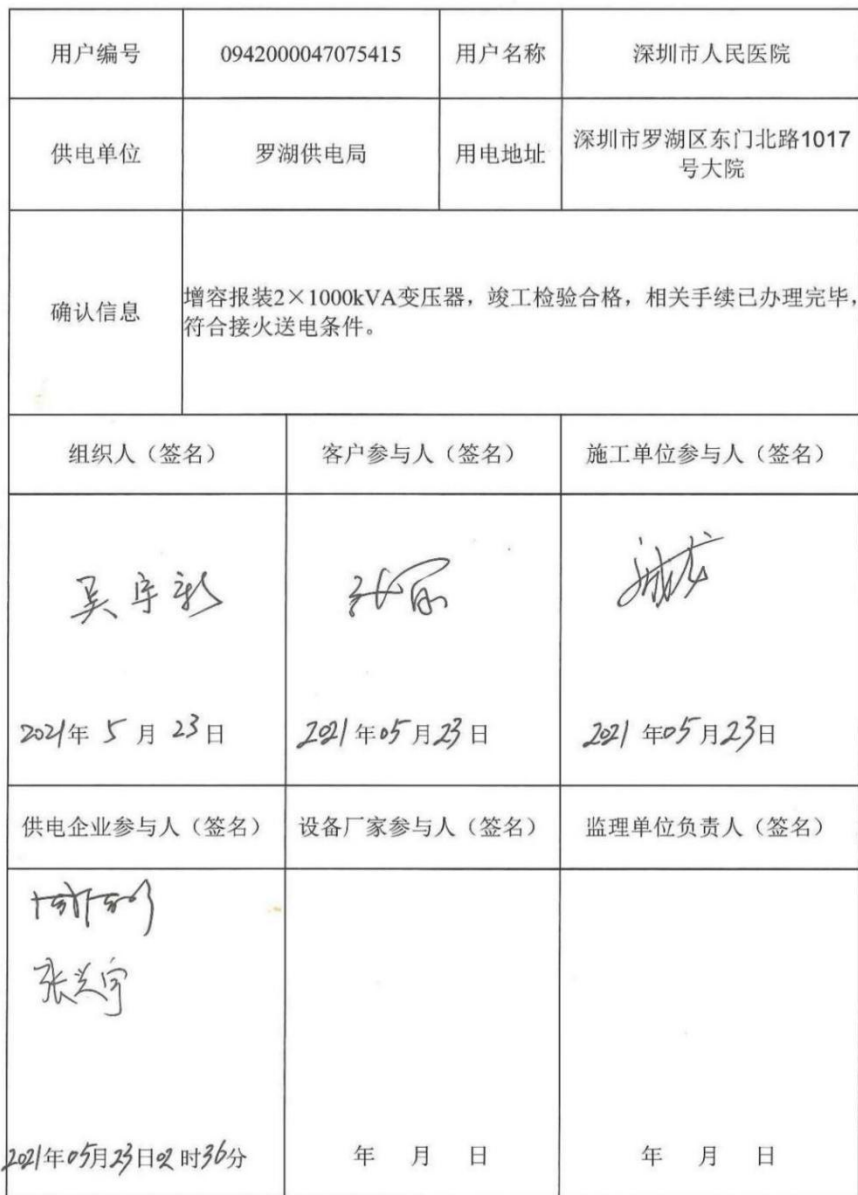 用户编号 0942000047075415 用户名称 深圳市人民医院
供电单位 罗湖供电局 用电地址 深圳市罗湖区东门北路1017
号大院
确认信息 增容报装2×1000kVA变压器，竣工检验合格，相关手续已办理完毕，
符合接火送电条件。
组织人（签名） 客户参与人（签名） 施工单位参与人（签名）
吴宇新
2021年 5 月 23日 2021年05月23日 2021年05月23日
供电企业参与人（签名） 设备厂家参与人（签名） 监理单位负责人（签名）
张兴宇
2021年05月23日02时36分 年 月 日 年 月 日